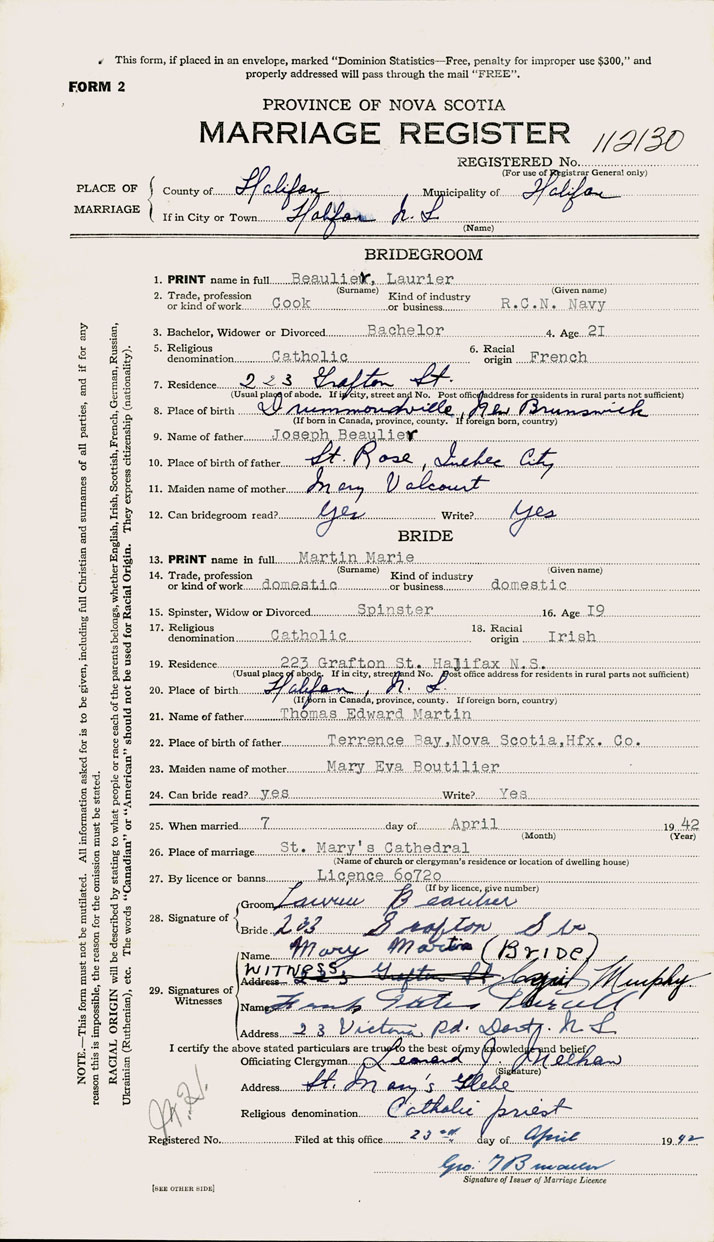 This form, if placed in an envelope, marked "Dominion Statistics—Free, penalty for improper use $300," and
properly addressed will pass through the mail "FREE".
FORM 2
PROVINCE OF NOVA SCOTIA
MARRIAGE REGISTER
112130
REGISTERED No.
(For use of Registrar General only)
PLACE OF MARRIAGE
County of Halifax Municipality of Halifax
If in City or Town Halifax N.S.
(Name)
BRIDEGROOM
1. PRINT name in full Beaulier, Laurier
(Surname) (Given name)
2. Trade, profession or kind of work Cook Kind of industry or business R.C.N. Navy
3. Bachelor, Widower or Divorced Bachelor 4. Age 2I
5. Religious denomination Catholic 6. Racial origin French
7. Residence 223 Grafton St.
(Usual place of abode. If in city, street and No. Post office address for residents in rural parts not sufficient)
8. Place of birth Drummondville, New Brunswick
(If born in Canada, province, county. If foreign born, country)
9. Name of father Joseph Beaulier
10. Place of birth of father St. Rose, Quebec City
11. Maiden name of mother Mary Valcourt
12. Can bridegroom read? Yes Write? Yes
BRIDE
13. PRINT name in full Martin Marie
(Surname) (Given name)
14. Trade, profession or kind of work domestic Kind of industry or business domestic
15. Spinster, Widow or Divorced Spinster 16. Age I9
17. Religious denomination Catholic 18. Racial origin Irish
19. Residence 223 Grafton St. Halifax N.S.
(Usual place of abode. If in city, street and No. Post office address for residents in rural parts not sufficient)
20. Place of birth Halifax, N.S.
(If born in Canada, province, county. If foreign born, country)
21. Name of father Thomas Edward Martin
22. Place of birth of father Terrence Bay,Nova Scotia,Hfx. Co.
23. Maiden name of mother Mary Eva Boutilier
24. Can bride read? yes Write? Yes
25. When married 7 day of April 1942
(Month) (Year)
26. Place of marriage St. Mary's Cathedral
(Name of church or clergyman's residence or location of dwelling house)
27. By licence or banns Licence 6o72o
(If by licence, give number)
28. Signature of
Groom Laurier Beaulier
Bride 223 Grafton St
29. Signatures of Witnesses
Name Mary Martin (BRIDE)
WITNESS
Address 223 Grafton St Murphy
Name Frank Purcell
Address 23 Victoria Rd. Dart. N.S.
I certify the above stated particulars are true to the best of my knowledge and belief.
Officiating Clergyman Leonard J. Meehan
(Signature)
Address St. Mary's Glebe
Religious denomination Catholic priest
Registered No. Filed at this office 23rd day of April 1942
Geo.
Signature of Issuer of Marriage Licence
[SEE OTHER SIDE]
NOTE.—This form must not be mutilated. All information asked for is to be given, including full Christian and surnames of all parties, and if for any
reason this is impossible, the reason for the omission must be stated.
RACIAL ORIGIN will be described by stating to what people or race each of the parents belongs, whether English, Irish, Scottish, French, German, Russian,
Ukrainian (Ruthenian), etc. The words "Canadian" or "American" should not be used for Racial Origin. They express citizenship (nationality).